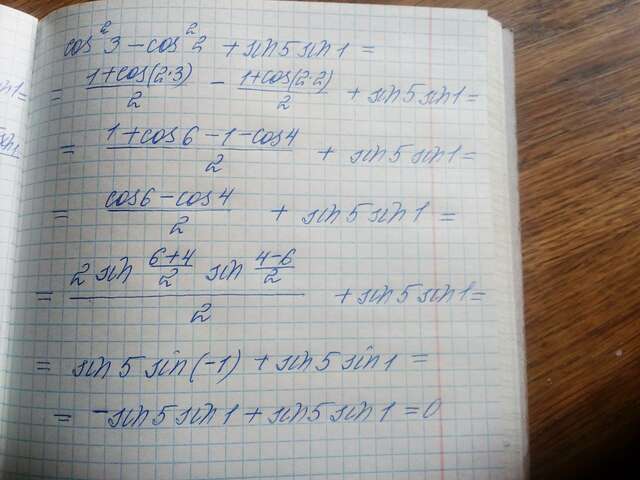 cos²3 - cos²2 + sin5 sin1 =
= (1+cos(2·3))/2 - (1+cos(2·2))/2 + sin5 sin1 =
= (1+cos6-1-cos4)/2 + sin5 sin1 =
= (cos6-cos4)/2 + sin5 sin1 =
= (2 sin (6+4)/2 sin (4-6)/2)/2 + sin5 sin1 =
= sin5 sin(-1) + sin5 sin1 =
= -sin5 sin1 + sin5 sin1 = 0